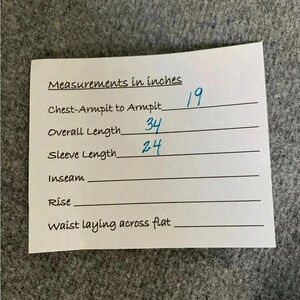 Measurements in inches
Chest-Armpit to Armpit 19
Overall Length 34
Sleeve Length 24
Inseam
Rise
Waist laying across flat